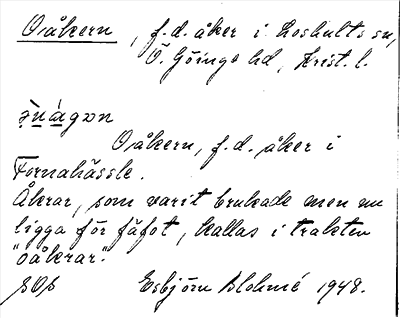 Oåkern, f.d. åker i Loshults sn,
Ö. Göinge hd, Krist. l.
Oåkern, f.d. åker i
Tornahässle.
Åkrar, som varit brukade men nu
ligga för fäfot, kallas i trakten
"oåkrar".
Esbjörn Blohmé 1948.